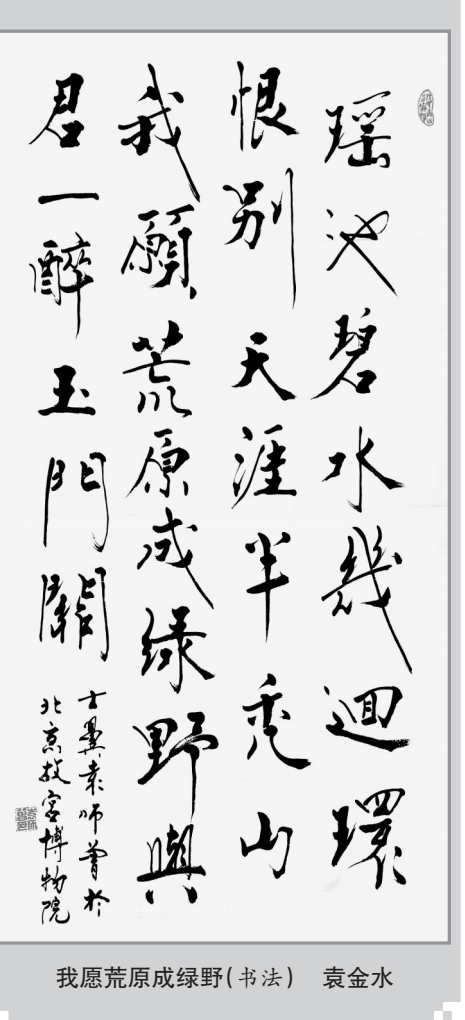 瑶池碧水幾迴環
恨别天涯半秃山
我願荒原成绿野與
君一醉玉門關
士異袁师曾於
北京故宫博物院
我愿荒原成绿野(书法) 袁金水